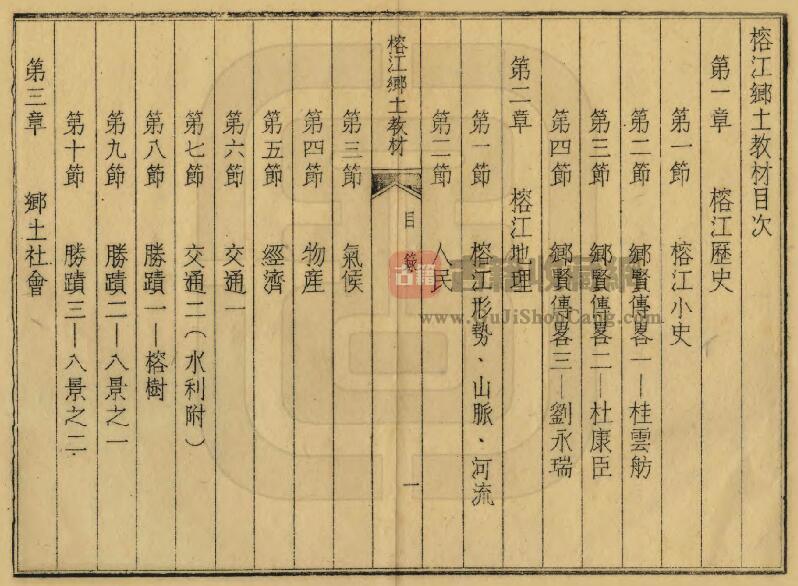 榕江鄉土教材目次
第一章 榕江歷史
第一節 榕江小史
第二節 鄉賢傳畧一—桂雲舫
第三節 鄉賢傳畧二—杜康臣
第四節 鄉賢傳畧三—劉永瑞
第二章 榕江地理
第一節 榕江形勢、山脈、河流
第二節 人民
榕江鄉土教材 目 一
第三節 氣候
第四節 物產
第五節 經濟
第六節 交通一
第七節 交通二（水利附）
第八節 勝蹟一—榕樹
第九節 勝蹟二—八景之一
第十節 勝蹟三—八景之二
第三章 鄉土社會
古籍
www.GuJiShouCang.com